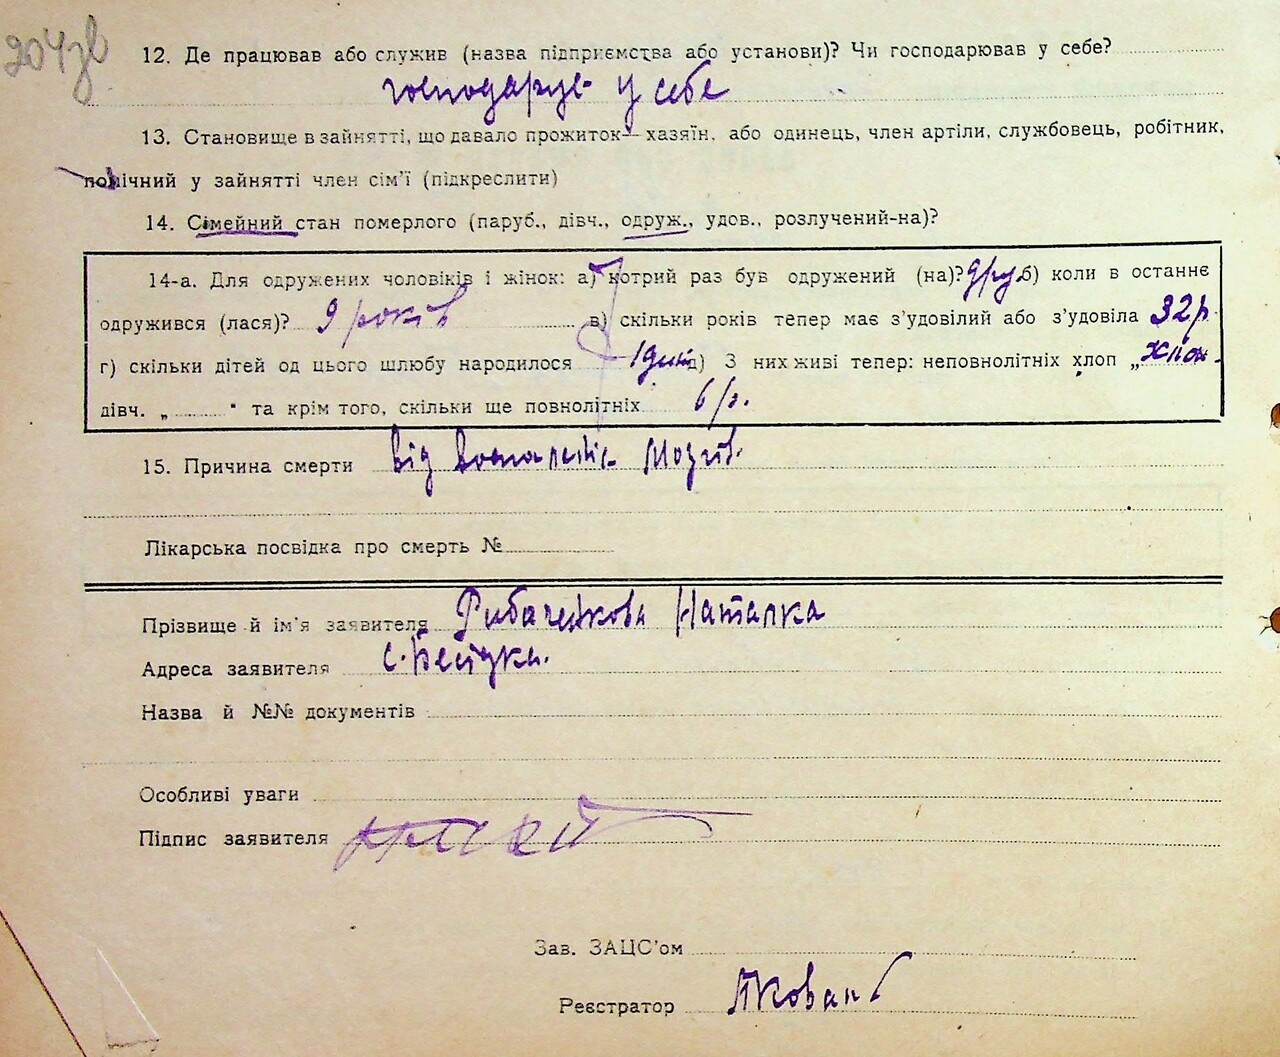 204зв
12. Де працював або служив (назва підприємства або установи)? Чи господарював у себе?
господарює у себе
13. Становище в зайнятті, що давало прожиток — хазяїн, або одинець, член артіли, службовець, робітник,
помічний у зайнятті член сім'ї (підкреслити)
14. Сімейний стан померлого (паруб., дівч., одруж., удов., розлучений-на)?
14-а. Для одружених чоловіків і жінок: а) котрий раз був одружений (на)? друг б) коли в останнє
одружився (лася)? 9 років в) скільки років тепер має з'удовілий або з'удовіла 32 р.
г) скільки дітей од цього шлюбу народилося 1 дит д) З них живі тепер: неповнолітніх хлоп „ хлоп
дівч. „ " та крім того, скільки ще повнолітніх 6 р.
15. Причина смерти від Мозгів
Лікарська посвідка про смерть №
Прізвище й ім'я заявителя Рибаченкова Наталка
Адреса заявителя с.
Назва й №№ документів
Особливі уваги
Підпис заявителя
Зав. ЗАЦС'ом
Реєстратор